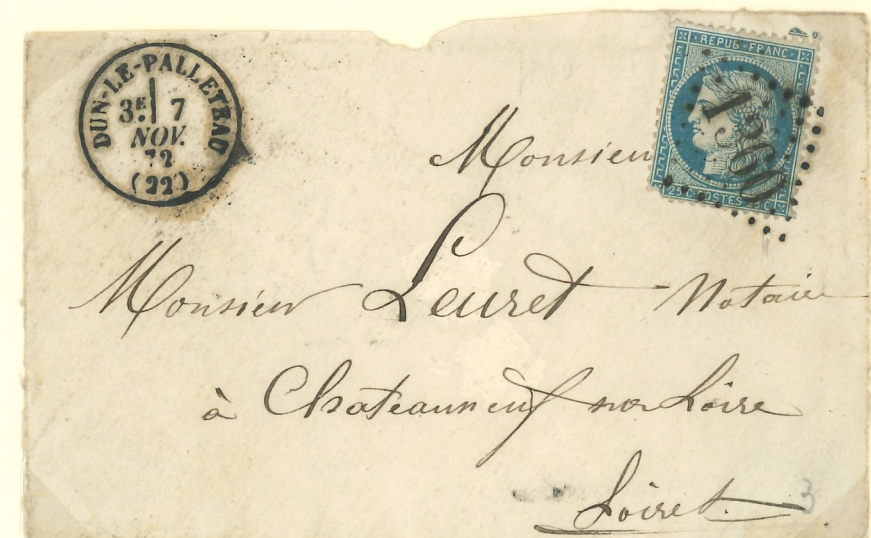 DUN-LE-PALLETEAU
3E 7
NOV.
72
(22)
REPUB·FRANC·
1360
25 C·POSTES·25 C
Monsieur
Monsieur Leuret Notaire
à Chateauneuf sur Loire
Loiret
3